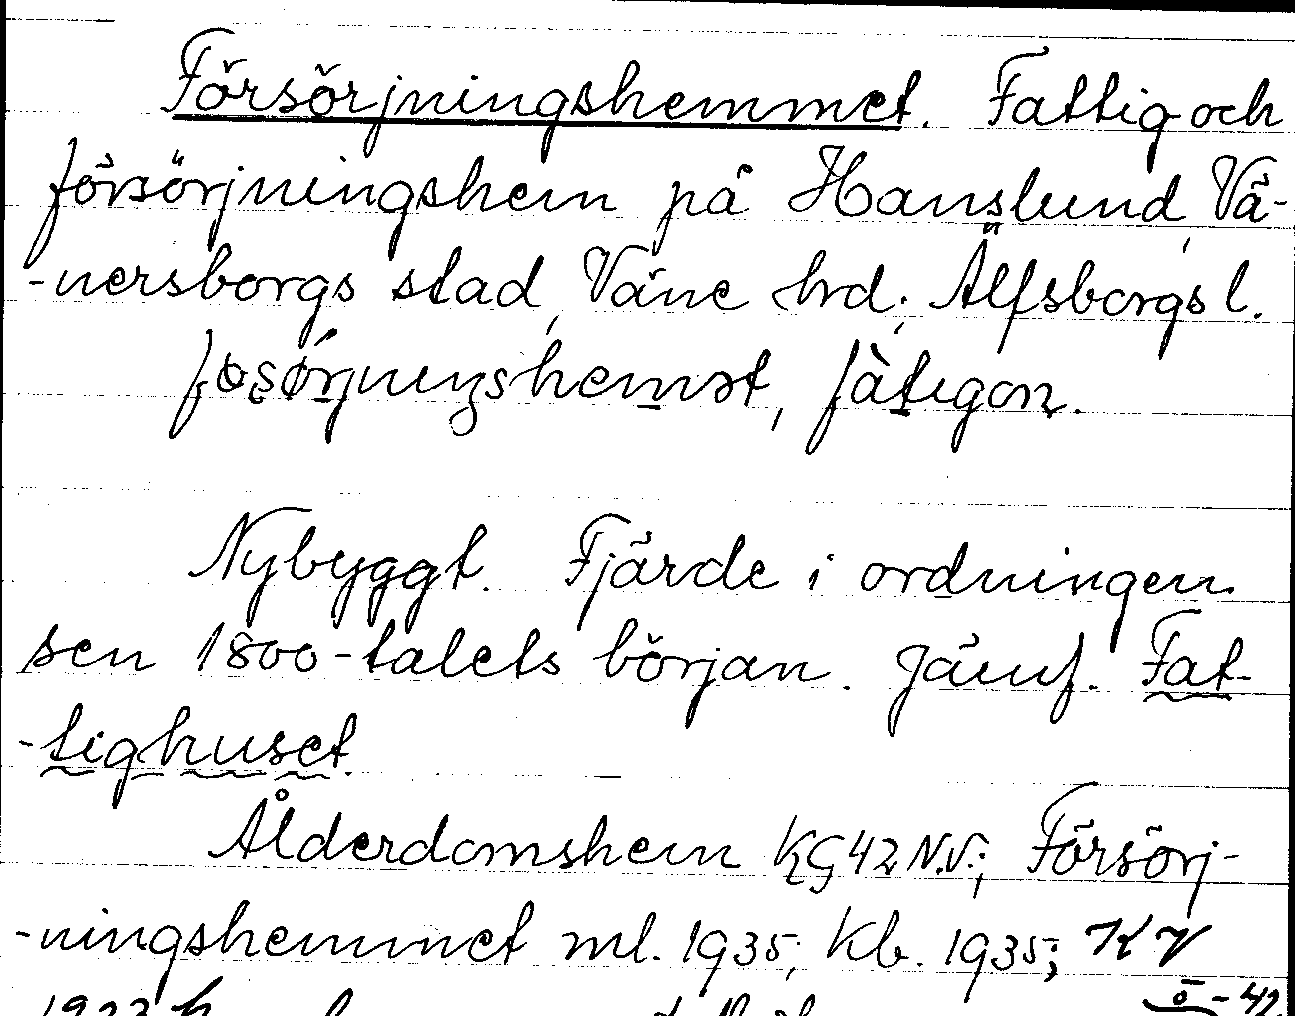 Försörjningshemmet. Fattig- och
försörjningshem på Hanslund, Vä-
-nersborgs stad, Väne hrd; Älfsborgs l.
Nybyggt. Fjärde i ordningen
sen 1800-talets början. Jämf. Fat-
-tighuset.
Ålderdomshem KG 42 N.V.; Försörj-
-ningshemmet ml. 1935; Kb. 1935; KV
ö - 42